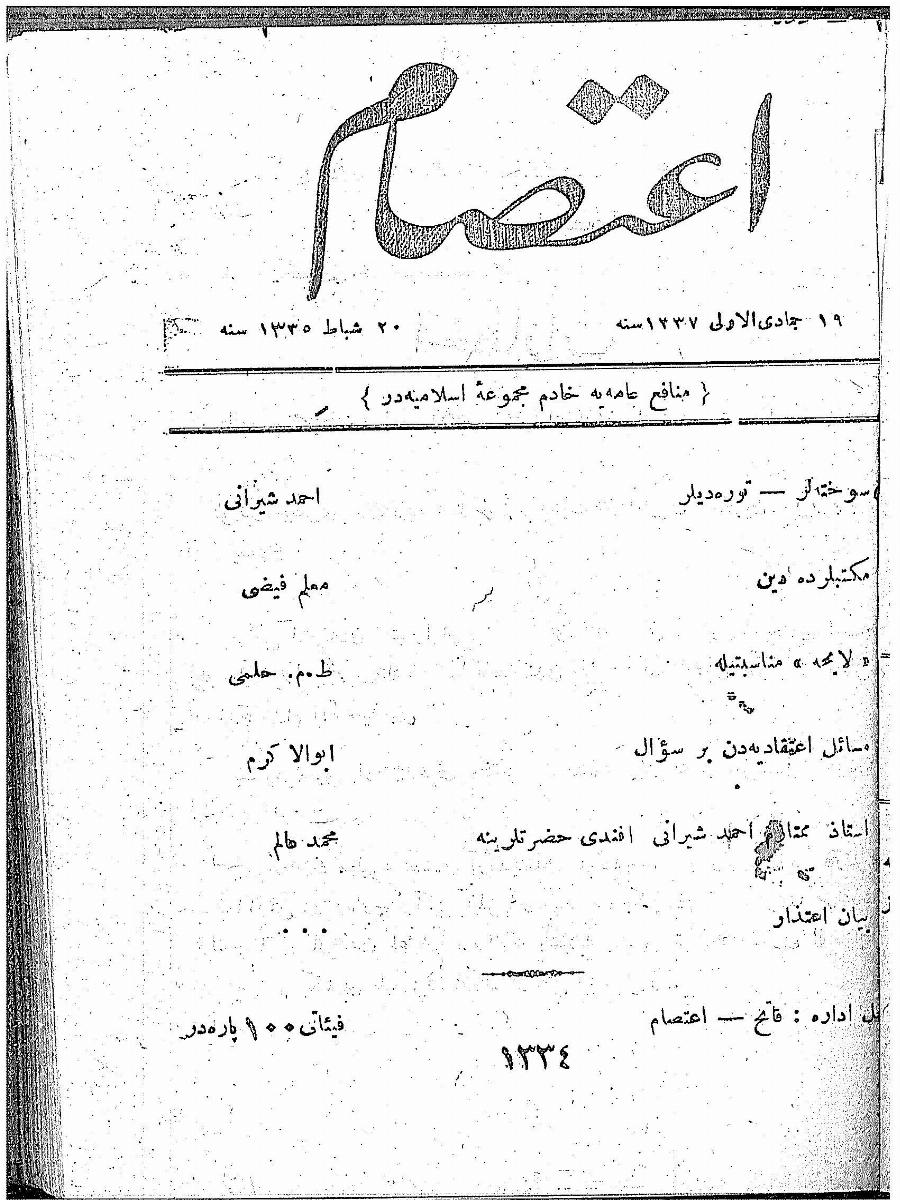 اعتصام
١٩ جمادی‌الاولی ١٣٣٧ سنه
٢٠ شباط ١٣٣٥ سنه
{ منافع عامه‌یه خادم مجموعهٔ اسلامیه‌در }
سوخته‌لر — توره‌دیلر احمد شیرانی
مکتبلرده دین معلم فیضی
« لایحه » مناسبتیله ط.م. حلمی
مسائل اعتقادیه‌دن بر سؤال ابوالاکرم
استاذ احمد شیرانی افندی حضرتلرینه محمد
بیان اعتذار . . .
اداره : فاتح — اعتصام
فیئاتی ١٠٠ پاره‌در
١٣٣٤